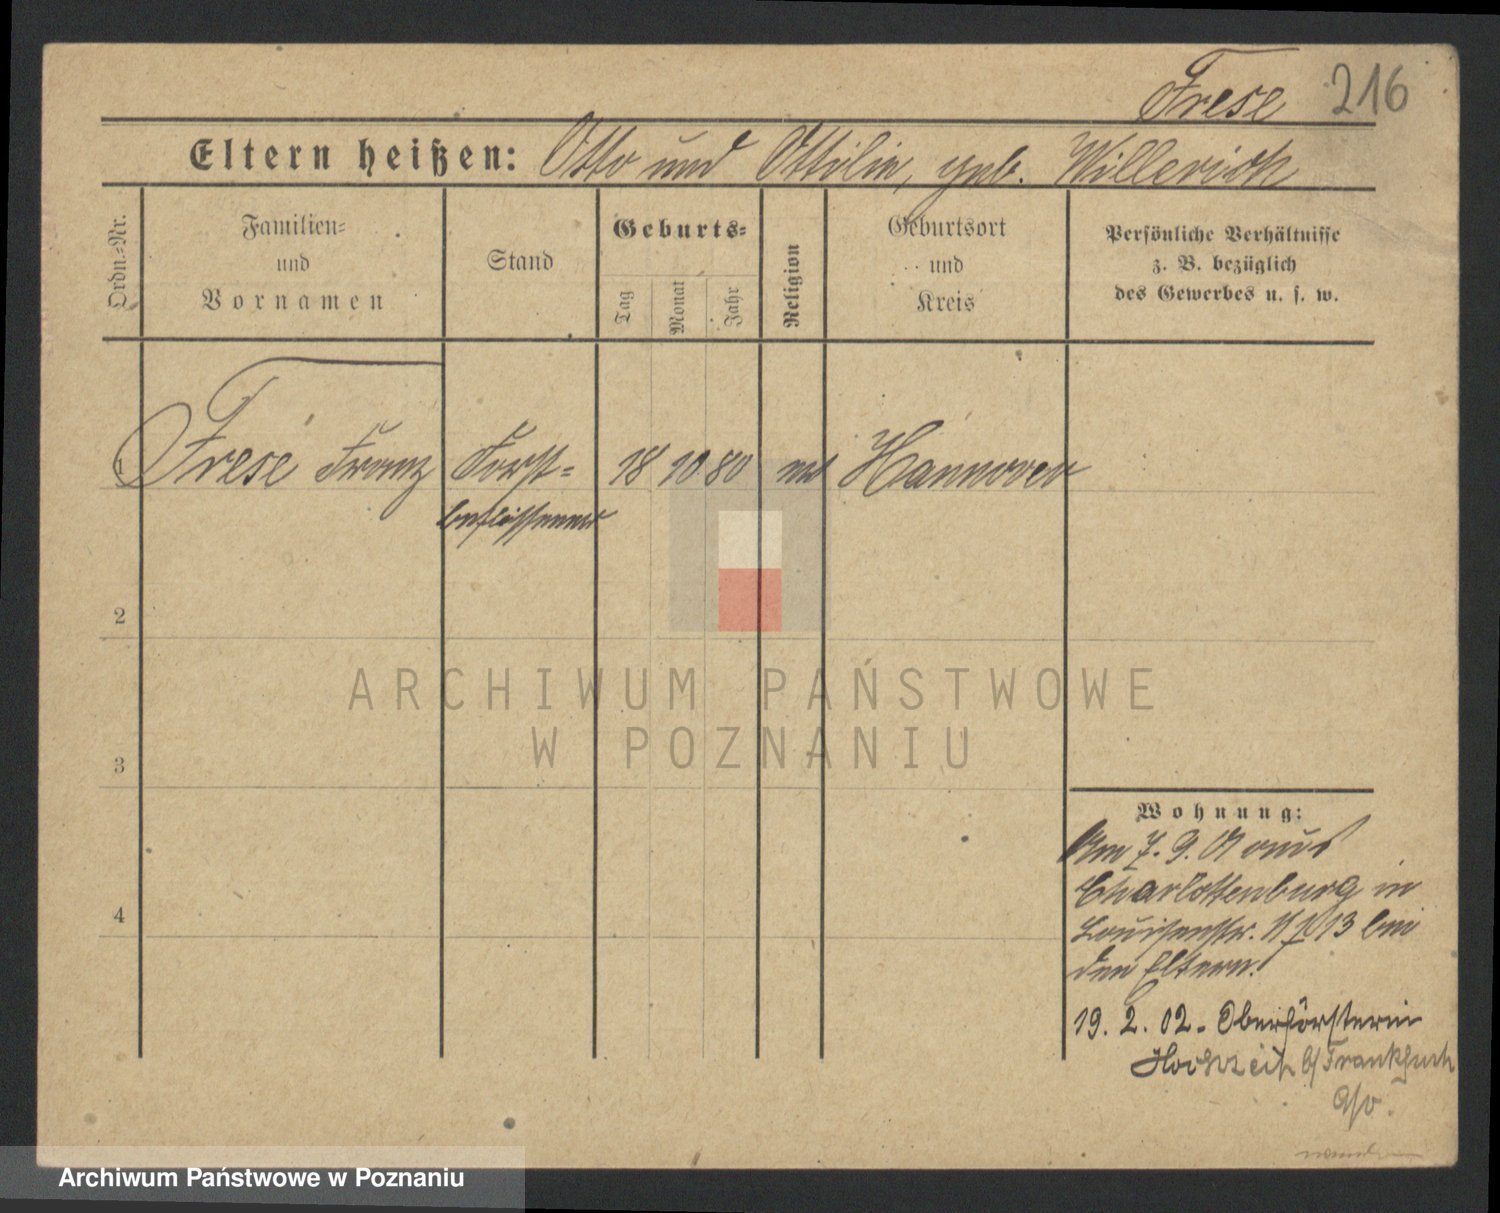 Frese 216
Eltern heißen: Otto und Ottilie, geb. Willerich
Ordn.=Nr.
Familien=
und
Vornamen
Stand
Geburts=
Tag
Monat
Jahr
Religion
Geburtsort
und
Kreis
Persönliche Verhältnisse
z. B. bezüglich
des Gewerbes u. s. w.
1 Frese Franz Forst= 18 10 80 Hannover
beflissener
2
3
4
ARCHIWUM PAŃSTWOWE
W POZNANIU
Wohnung:
Am 7. 9. 01 aus
Charlottenburg in
Louisenstr. 13 bei
den Eltern.
19. 2. 02. Oberförsterei
Hochzeit b/ Frankfurth
a/o.
Archiwum Państwowe w Poznaniu